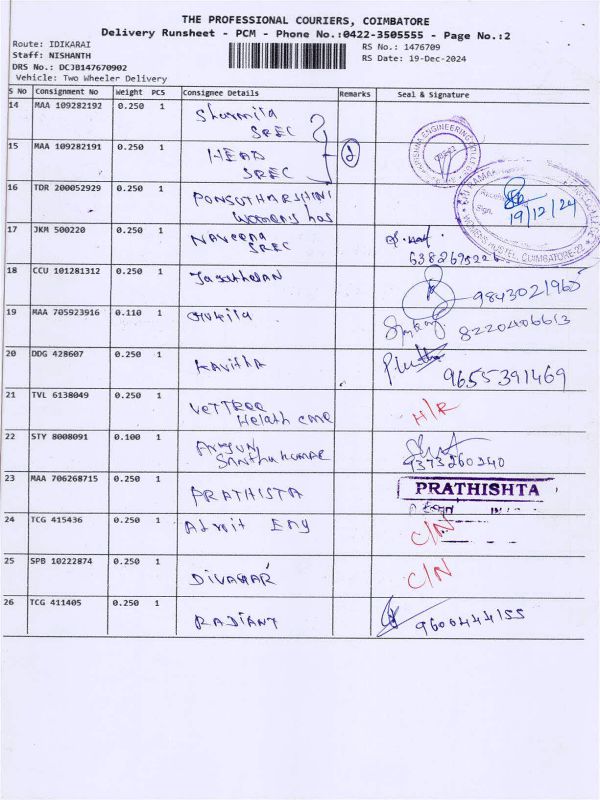 THE PROFESSIONAL COURIERS, COIMBATORE
Delivery Runsheet - PCM - Phone No.:0422-3505555 - Page No.:2
Route: IDIKARAI
RS No.: 1476709
Staff: NISHANTH
RS Date: 19-Dec-2024
DRS No.: DCJB147670902
Vehicle: Two Wheeler Delivery
S No Consignment No Weight PCS Consignee Details Remarks Seal & Signature
14 MAA 109282192 0.250 1 Sharmila
SREC
15 MAA 109282191 0.250 1 HEAD
SREC
2
16 TDR 200052929 0.250 1 PONSUTHARSHINI
womens hos
19/12/24
HOSTEL, COIMBATORE-22
17 JKM 500220 0.250 1 NAVEENA
SREC
18 CCU 101281312 0.250 1
9843021965
19 MAA 705923916 0.110 1
8220406613
20 DDG 428607 0.250 1 KAVITHA
9655391469
21 TVL 6138049 0.250 1 VETTREE
Helath care
H/R
22 STY 8008091 0.100 1 ARJUN
SANTHUKUMAR
9373260340
23 MAA 706268715 0.250 1 PRATHISTA
PRATHISHTA
24 TCG 415436 0.250 1 Atroit Eng
C/N
25 SPB 10222874 0.250 1 DIVAGAR
C/N
26 TCG 411405 0.250 1 RADIANT
9600444155